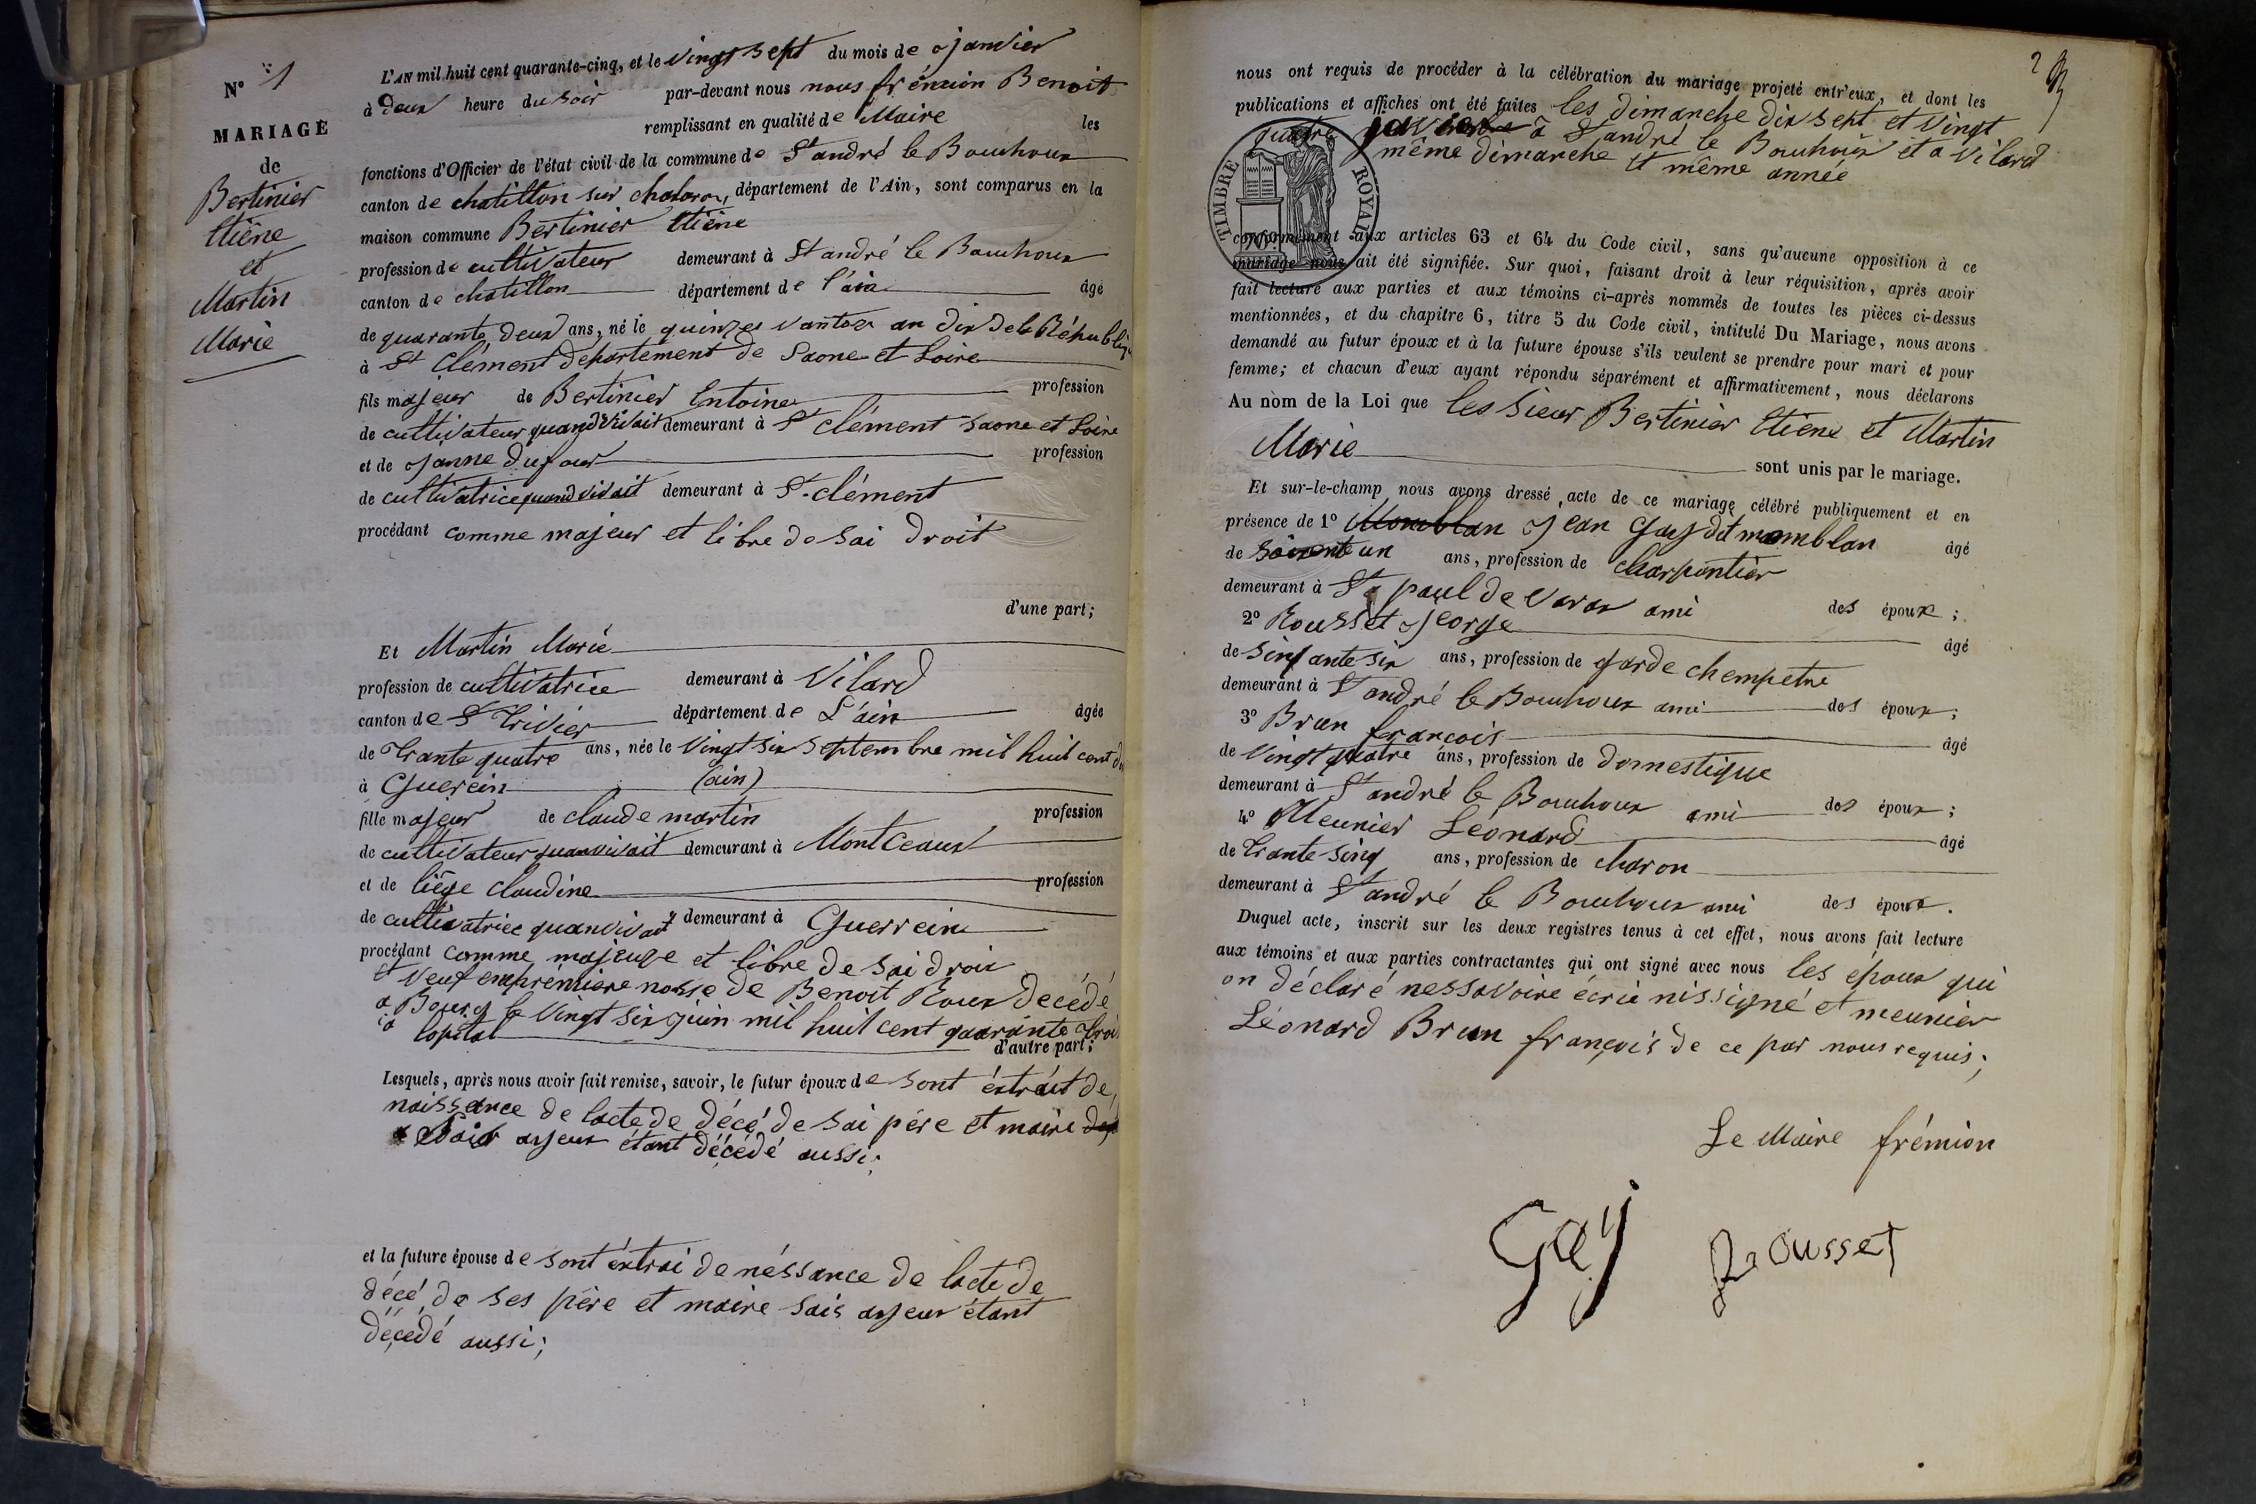 N° 1
MARIAGE
de
Bertinier
Etiêne
et
Martin
Marie
L'AN mil huit cent quarante-cinq, et le vingt sept du mois de janvier
à deux heure du soir par-devant nous nous frémion Benoit
remplissant en qualité de Maire les
fonctions d'Officier de l'état civil de la commune de St andré le Bouchoux
canton de chatillon sur chalaron, département de l'Ain, sont comparus en la
maison commune Bertinier Etiêne
profession de cultivateur demeurant à St andré le Bouchoux
canton de chatillon département de l'ain âgé
de quarante deux ans, né le quinzes vantos an dix de la Républiq
à St Clément département de Saone et Loire
fils majeur de Bertinier Entoine profession
de cultivateur quand vivait demeurant à St clément Saone et Loire
et de janne Dufour profession
de cultivatrice quand vivait demeurant à St clément
procédant comme majeur et libre de sai droit
d'une part;
Et Martin Marie
profession de cultivatrice demeurant à Vilard
canton de St Trivier département de L'ain âgée
de trante quatre ans, née le vingt six septembre mil huit cent
à Guerein (ain)
fille majeur de claude martin profession
de cultivateur quanvivait demeurant à Montceaux
et de liège claudine profession
de cultivatrice quanvivait demeurant à Guerrein
procédant comme majeure et libre de sai droit
et veuf enprémiere nosse de Benoit Roux décédé
a Bourg le vingt six juin mil huit cent quarante troi
a lopital
d'autre part;
Lesquels, après nous avoir fait remise, savoir, le futur époux de sont éxtrait de
naissance de lacte de décé de sai père et maire
sais ayeux étant décédé aussi;
et la future épouse de sont éxtrai de néssance de lacte de
décé de ses père et maire sais ayeux étant
décédé aussi;
2
nous ont requis de procéder à la célébration du mariage projeté entr'eux, et dont les
publications et affiches ont été faites les dimanche dix sept et vingt
quatre à St andré le Bouchoux et a Vilard
même dimanche et même année
TIMBRE ROYAL
conformément aux articles 63 et 64 du Code civil, sans qu'aucune opposition à ce
mariage nous ait été signifiée. Sur quoi, faisant droit à leur réquisition, après avoir
fait lecture aux parties et aux témoins ci-après nommés de toutes les pièces ci-dessus
mentionnées, et du chapitre 6, titre 5 du Code civil, intitulé Du Mariage, nous avons
demandé au futur époux et à la future épouse s'ils veulent se prendre pour mari et pour
femme; et chacun d'eux ayant répondu séparément et affirmativement, nous déclarons
Au nom de la Loi que les Sieur Bertinier Etiêne et Martin
Marie sont unis par le mariage.
Et sur-le-champ nous avons dressé acte de ce mariage célébré publiquement et en
présence de 1° Momblan jean Gay dit momblan âgé
de soixante un ans, profession de charpentier
demeurant à St paul de varax ami des époux;
2° Rousset jeorge âgé
de sinqante six ans, profession de garde chempetre
demeurant à St andré le Bouchoux ami des époux;
3° Brun francois âgé
de vingt quatre ans, profession de domestique
demeurant à St andré le Bouchoux ami des époux;
4° Meunier Léonard âgé
de trante sinq ans, profession de charon
demeurant à St andré le Bouchoux ami des époux.
Duquel acte, inscrit sur les deux registres tenus à cet effet, nous avons fait lecture
aux témoins et aux parties contractantes qui ont signé avec nous les époux qui
on déclaré nessavoire écrie nissigné et meunier
Léonard Brun françois de ce par nous requis;
Le Maire frémion
Gay Rousset